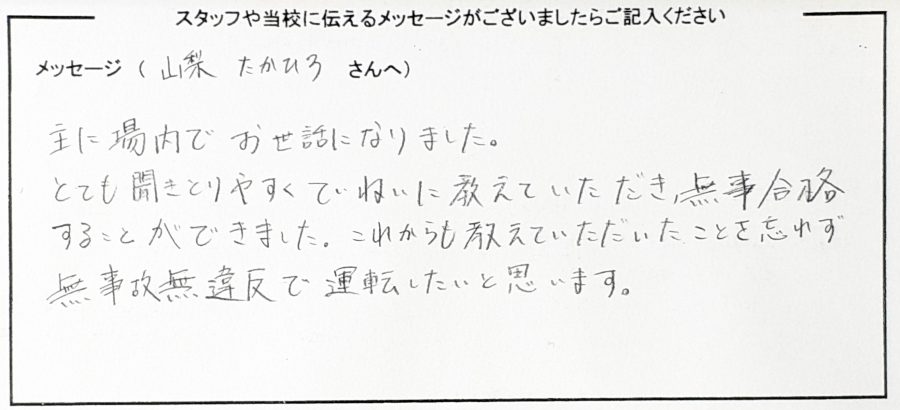 スタッフや当校に伝えるメッセージがございましたらご記入ください
メッセージ ( 山梨 たかひろ さんへ)
主に場内で お世話になりました。
とても聞きとりやすくていねいに教えていただき、無事合格
することができました。これからも教えていただいたことを忘れず
無事故無違反で運転したいと思います。